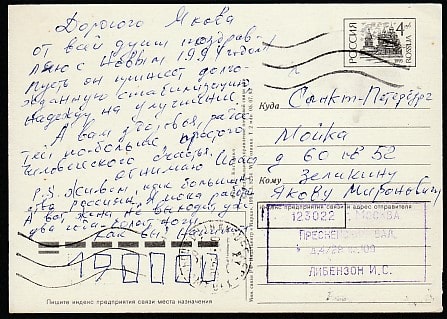 Дорогого Якова
от всей души поздрав-
ляю с Новым 199 годом!
Пусть он принесет долго-
жданную стабилизацию,
надежду на улучшение.
А вам здоровья, радос-
тей побольше, простого
человеческого счастья.
обнимаю Исаа
P.S. Живем как большин-
ство россиян. Я пока работаю
А вот жена не выходит уже
два года болят ноги
РОССИЯ
4
ROSSIJA
1995
Куда Санкт-Петербург
Мойка
д 60 кв 52
Кому Зеликину
Якову Мироновичу
Индекс предприятия связи и адрес отправителя
123022 МОСКВА
ПРЕСНЕНСКИЙ ВАЛ,
ЛИБЕНЗОН И.С.
190000
Пишите индекс предприятия связи места назначения